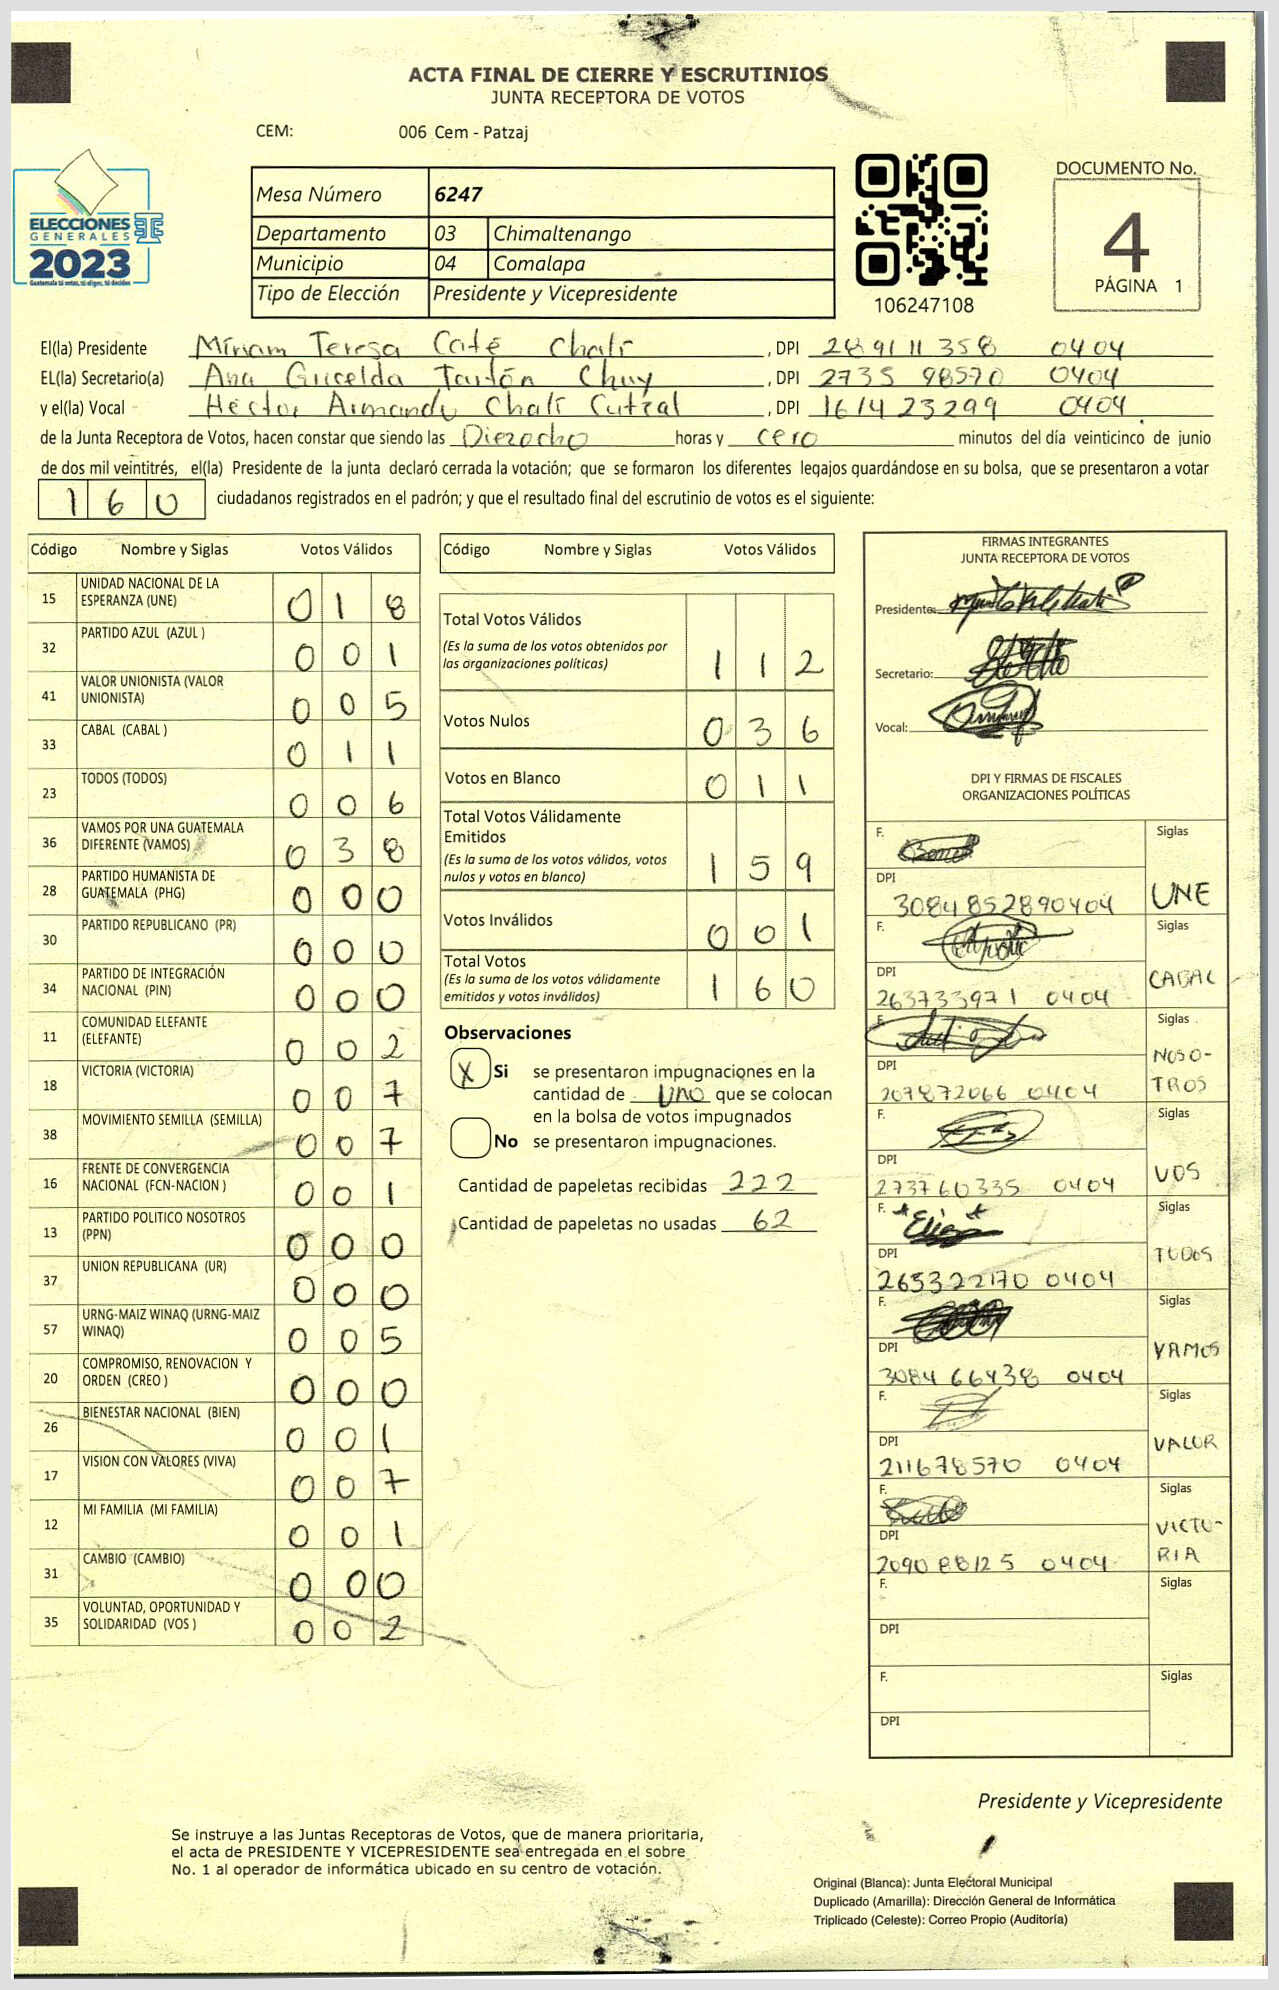 ACTA FINAL DE CIERRE Y ESCRUTINIOS
JUNTA RECEPTORA DE VOTOS
CEM: 006 Cem - Patzaj
ELECCIONES
GENERALES
2023
Guatemala tú votas, tú eliges, tú decides
Mesa Número 6247
Departamento 03 Chimaltenango
Municipio 04 Comalapa
Tipo de Elección Presidente y Vicepresidente
106247108
DOCUMENTO No.
4
PÁGINA 1
El(la) Presidente Míriam Teresa Caté Chalí, DPI 289111358 0404
EL(la) Secretario(a) Ana Gricelda Chuy, DPI 2735 98570 0404
y el(la) Vocal Héctor Armando Chalí Cutzal, DPI 1614 23299 0404
de la Junta Receptora de Votos, hacen constar que siendo las Dieziocho horas y cero minutos del día veinticinco de junio
de dos mil veintitrés, el(la) Presidente de la junta declaró cerrada la votación; que se formaron los diferentes legajos guardándose en su bolsa, que se presentaron a votar
160 ciudadanos registrados en el padrón; y que el resultado final del escrutinio de votos es el siguiente:
Código Nombre y Siglas Votos Válidos
15 UNIDAD NACIONAL DE LA ESPERANZA (UNE) 018
32 PARTIDO AZUL (AZUL ) 001
41 VALOR UNIONISTA (VALOR UNIONISTA) 005
33 CABAL (CABAL ) 011
23 TODOS (TODOS) 006
36 VAMOS POR UNA GUATEMALA DIFERENTE (VAMOS) 038
28 PARTIDO HUMANISTA DE GUATEMALA (PHG) 000
30 PARTIDO REPUBLICANO (PR) 000
34 PARTIDO DE INTEGRACIÓN NACIONAL (PIN) 000
11 COMUNIDAD ELEFANTE (ELEFANTE) 002
18 VICTORIA (VICTORIA) 007
38 MOVIMIENTO SEMILLA (SEMILLA) 007
16 FRENTE DE CONVERGENCIA NACIONAL (FCN-NACION ) 001
13 PARTIDO POLITICO NOSOTROS (PPN) 000
37 UNION REPUBLICANA (UR) 000
57 URNG-MAIZ WINAQ (URNG-MAIZ WINAQ) 005
20 COMPROMISO, RENOVACION Y ORDEN (CREO ) 000
26 BIENESTAR NACIONAL (BIEN) 001
17 VISION CON VALORES (VIVA) 007
12 MI FAMILIA (MI FAMILIA) 001
31 CAMBIO (CAMBIO) 000
35 VOLUNTAD, OPORTUNIDAD Y SOLIDARIDAD (VOS ) 002
Código Nombre y Siglas Votos Válidos
Total Votos Válidos 112
(Es la suma de los votos obtenidos por
las organizaciones políticas)
Votos Nulos 036
Votos en Blanco 011
Total Votos Válidamente
Emitidos 159
(Es la suma de los votos válidos, votos
nulos y votos en blanco)
Votos Inválidos 001
Total Votos 160
(Es la suma de los votos válidamente
emitidos y votos inválidos)
Observaciones
X Si se presentaron impugnaciones en la
cantidad de uno que se colocan
en la bolsa de votos impugnados
No se presentaron impugnaciones.
Cantidad de papeletas recibidas 222
Cantidad de papeletas no usadas 62
FIRMAS INTEGRANTES
JUNTA RECEPTORA DE VOTOS
Presidente:
Secretario:
Vocal:
DPI Y FIRMAS DE FISCALES
ORGANIZACIONES POLÍTICAS
F. Siglas
DPI UNE
3084852890404
F. Siglas
DPI CABAL
263733971 0404
F. Siglas
DPI NOSO-
207872066 0404 TROS
F. Siglas
DPI VOS
273760335 0404
F. Siglas
DPI TODOS
265322170 0404
F. Siglas
DPI VAMOS
3084 66438 0404
F. Siglas
DPI VALOR
211678570 0404
F. Siglas
DPI VICTO-
2090 88125 0404 RIA
F. Siglas
DPI
F. Siglas
DPI
Presidente y Vicepresidente
Se instruye a las Juntas Receptoras de Votos, que de manera prioritaria,
el acta de PRESIDENTE Y VICEPRESIDENTE sea entregada en el sobre
No. 1 al operador de informática ubicado en su centro de votación.
Original (Blanca): Junta Electoral Municipal
Duplicado (Amarilla): Dirección General de Informática
Triplicado (Celeste): Correo Propio (Auditoría)